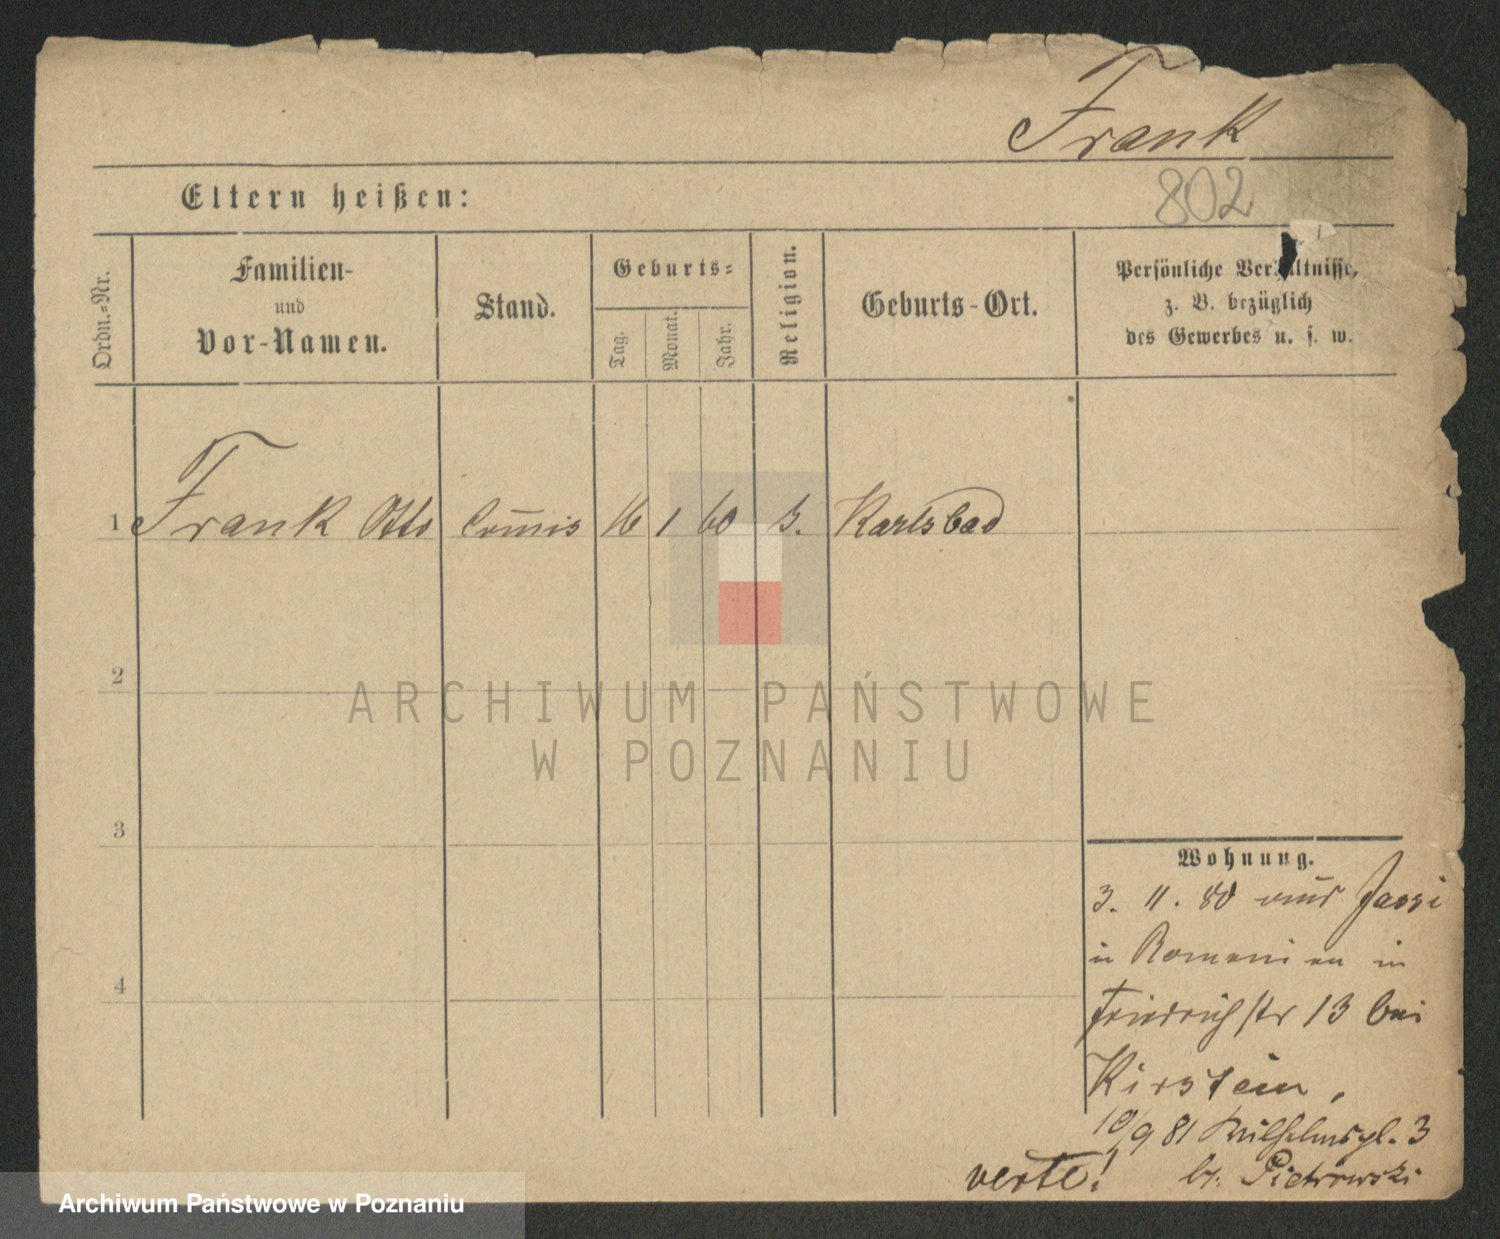 Frank
Eltern heißen:
802
Ordn.-Nr.
Familien-
und
Vor-Namen.
Stand.
Geburts-
Tag.
Monat.
Jahr.
Religion.
Geburts-Ort.
Persönliche Verhältnisse,
z. B. bezüglich
des Gewerbes u. s. w.
1 Frank Otto Com̅is 16 1 60 Karlsbad
2
3
4
Wohnung.
3. 11. 80 aus Jassi
in Romanien in
Friedrichstr 13 bei
Kirstein,
10/9 81 Wilhelmspl. 3
verte! b. Pietrowski
ARCHIWUM PAŃSTWOWE
W POZNANIU
Archiwum Państwowe w Poznaniu